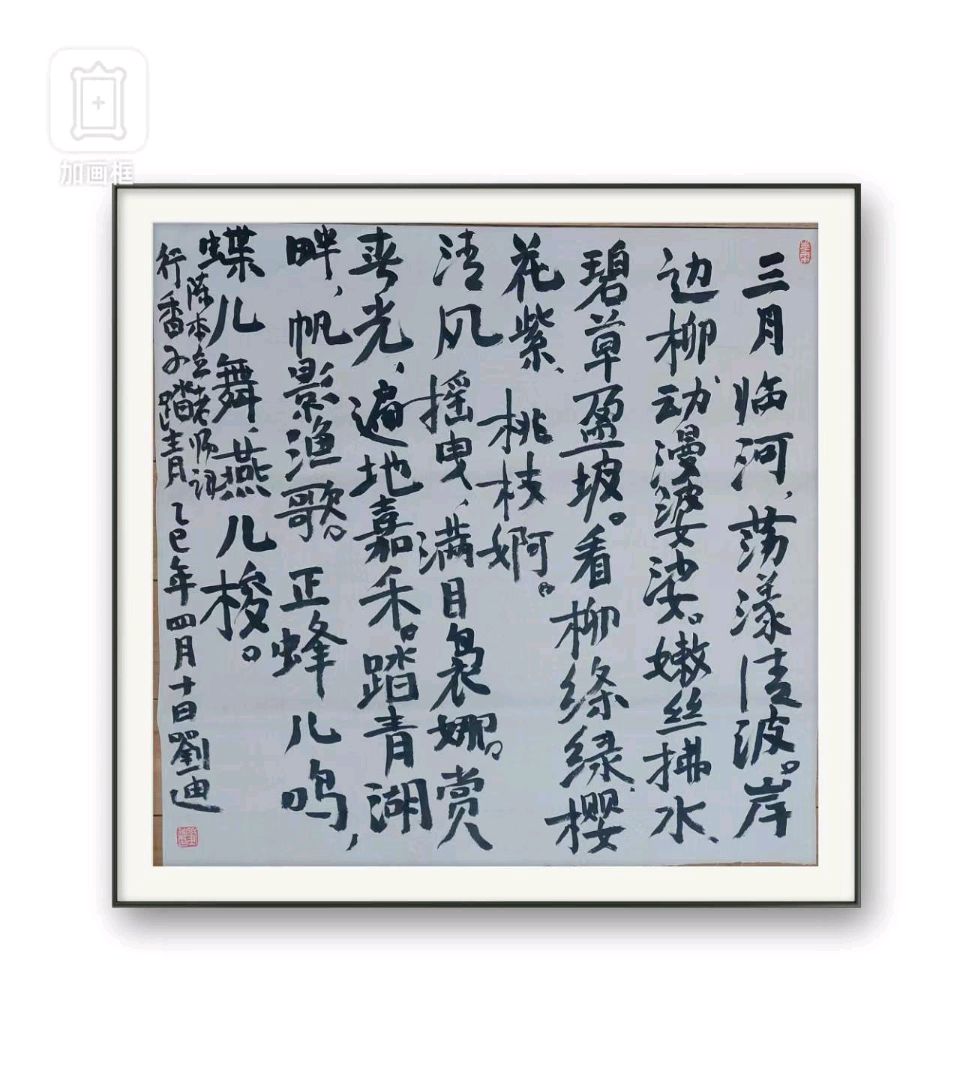 加画框
三月临河,荡漾清波。岸
边柳、动漫婆娑。嫩丝拂水、
碧草盈坡。看柳绦绿、樱
花紫、桃枝婀。
清风摇曳,满目袅娜。赏
春光,遍地嘉禾。踏青湖
畔,帆影渔歌。正蜂儿鸣,
蝶儿舞、燕儿梭。
陈本立老师词
行香子踏青 乙巳年四月十日劉迪